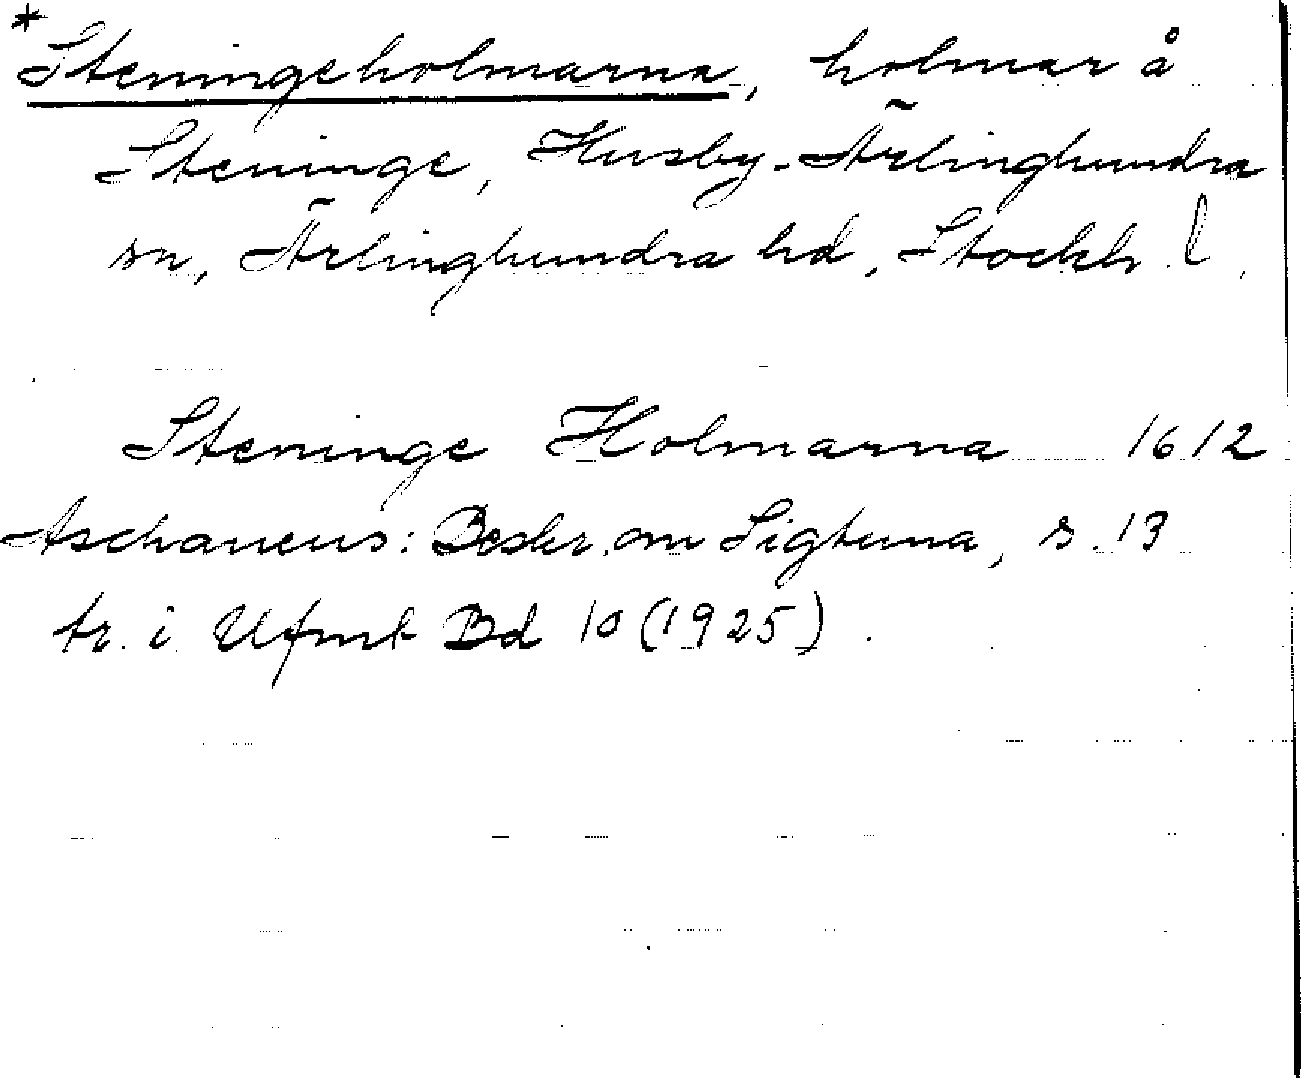 *
Steningeholmarna, holmar å
Steninge, Husby-Ärlinghundra
sn, Ärlinghundra hd, Stockh. l.
Steninge Holmarna 1612
Aschaneus: Beskr. om Sigtuna, s. 13
tr. i Ufmt Bd 10 (1925).